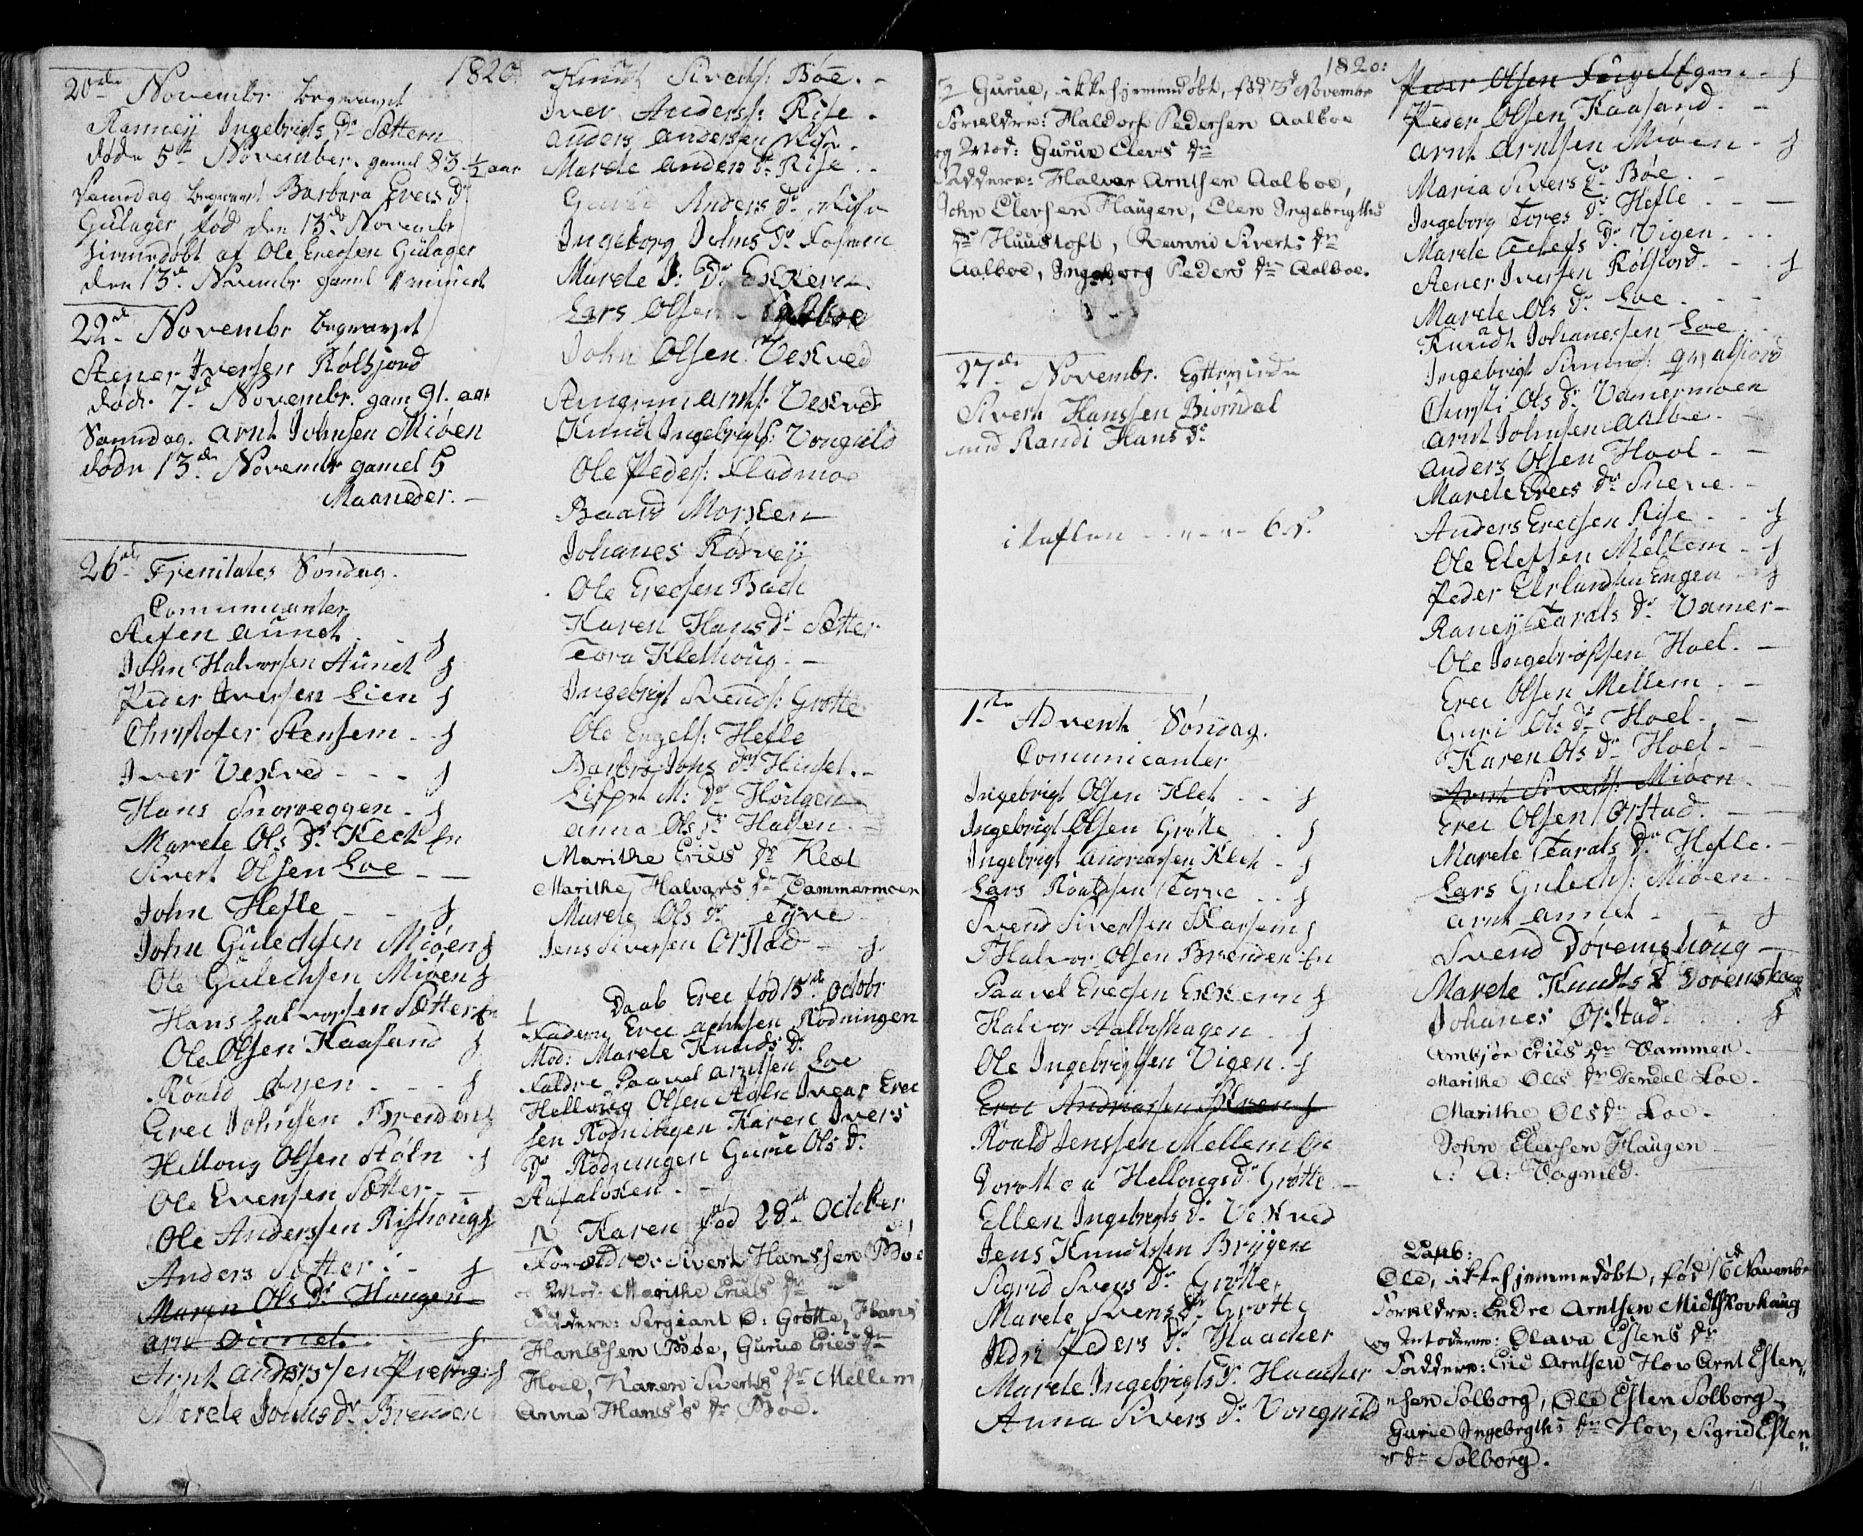 1820
20de Novembr begravet
Ranney Ingebrigts Dr Sættern
døde 5te November. gamel 83 1/2 aar
Samdag begravet Barbara Erecs Dr
Gulager, fød den 13de Novembr
hiemedøbt af Ole Erecsen Gulager
den 13de Novembr gamel
22de Novembr begravet
Stener Iversen Rølsjord
døde 7de Novembr. gam 91. aar
Samdag. Arnt Johnsen Miøen
døde 13de Novembr gamel 5
Maaneder. -
26de Trenitates Søndag.
Comunicanter
Steffen Aunet
John Halvorsen Aunet
Peder Iversen Lien
Christofer Stensem
Iver Vesved
Hans Snoreggen
Marete Ols Dr Klet
Sivert Olsen Loe
John Hefle
John Gulechsen Miøen
Ole Gulechsen Miøen
Hans Halvorsen Sætter
Ole Olsen Kaasand
Roald Øyen
Erec Johnsen Brenden
Helloug Olsen Støln
Ole Evensen Sætter
Ole Anderssen Rishoug
Anders Sætter
Maren Ols Dr Hougen
Arnt Aunet
Arnt Anderssen
Marete Johns Dr Brenden
Knut Siverts: Bøe
Iver Anderss: Rise
Anders Andersen Rise
Marete Anders Dr Rise
Guri Anders Dr Rise
Ingeborg Johns Dr
Marete J: Dr Eskern
Lars Olsen Aalboe
John Olsen Veskved
Arnts: Veskved
Knud Ingebrigts: Vongnild
Ole Peders: Fladmoe
Baard Morken
Johanes Rødvey
Ole Erecsen Bach
Karen Hans Dr Sætter
Tora Klethoug
Ingebrigt Svends: Grøtte
Ole Engels: Hefle
Barbro Johs Dr Hindset
Lisbet M: Dr Hougen
Anna Ols Dr Halsen
Marithe Erics Dr Klæt
Marithe Halvars Dr Tammermoen
Marete Ols Dr Teyve
Jens Siversen Ørstad
1 Daab Erec fød 15de Octobr
Faderen Erec Arntsen Rødningen
Mod: Marete Knuds Dr
Faddre Paavel Arntsen Loe
Helloug Olsen Iver Erec
sen Rødningen Karen Ivers
Dr Rødningen Gurie Ols Dr
2 Karen fød 28de October
Forældre: Sivert Hanssen Bøe
og Mor: Marithe Erics Dr
Faddere: Sergiant O: Grøtte, Hans
Hanssen Bøe, Gurue Erics Dr
Hoel, Karen Siverts Dr Mellem,
Anna Hans's Dr Bøe.
1820:
3 Gurue, ikke hjemmedøbt, fød 5de November
Forældre: Haldors Pedersen Aalboe
og Mod: Gurue Elevs Dr
Faddere: Halvar Arntsen Aalboe,
John Elevsen Haugen, Elen Ingebrigths
Dr Huustoft, Ranni Siverts Dr
Aalboe, Ingeborg Peders Dr Aalboe.
27de Novembr. Egtteviede
Sivert Hanssen Biørndal
med Randi Hans Dr
i taflen - - - 6. s.
1ste Advent Søndag.
Comunicanter
Ingebrigt Olsen Klet
Ingebrigt Olsen Grøtte
Ingebrigt Andriassen Klet
Lars Roaldsen Torve
Svend Siverssen Skarsem
Halvor Olsen Brenden
Paavel Erecsen Eskern
Halvor Aalbøshagen
Ole Ingebrigtsen Vigen
Erec Andriassen
Roald Jenssen Mellem
Dorothea Hellougs Dr Grøtte
Ellen Ingebrigts Dr Veskved
Jens Knudtssen Bryggen
Sigrid Svens Dr Grøtte
Marete Svens Dr Grøtte
Peders Dr Haacker
Marete Ingebrigts Dr Haacker
Anna Sivers Dr Vongnild
Peder Olsen
Peder Olsen Kaasand
Arnt Arntsen Miøen
Maria Sivers Dr Bøe
Ingeborg Tores Dr Hefle
Marete Tolefs Dr Vigen
Stener Iversen Rølsjord
Marete Ols Dr Loe
Knudt Johanessen Loe
Ingebrigt Simens:
Christi Ols Dr Vamermoen
Arnt Johnsen Aalbe
Anders Olsen Hool
Marete Erecs Dr Sneve
Anders Erecsen Rise
Ole Elefsen Mellem
Peder Erlandsen Engen
Raney Tarals Dr Vamer
Ole Ingebrigtsen Hoel
Erec Olsen Mellem
Guri Ols Dr Hoel
Karen Ols Dr Hoel
Arnt Siverts: Miøen
Erec Olsen Ørstad
Marete Tarals Dr Hefle
Lars Gulechs: Miøen
Arnt Aunet
Svend Dørremshoug
Marete Knudts D Dørremshoug
Johanes Ørstad
Ambjør Erics Dr Vammer
Marithe Oles Dr Vendel Loe
Marithe Ols Dr Loe
John Elevsen Haugen
C: A: Vognild.
Daab:
Ole, ikke hjemmedøbt, fød 16de Novembr
Forældre: Endre Arntsen Midtskovhaug
og Moderen: Olava Estens Dr
Faddere: Eric Arntsen Hov Arnt Esten
nsen Solborg, Ole Esten Solborg
Gurie Ingebrigths Dr Hov, Sigrid Esten
s Dr Solborg.